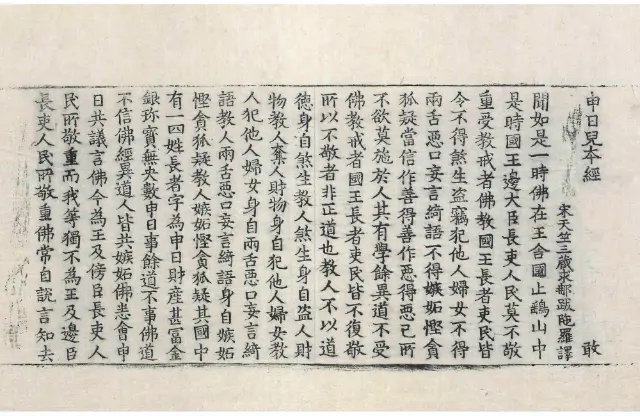 申日兒夲經 敢
宋天竺三藏求那跋陁羅譯
聞如是一時佛在王舍國止鷂山中
是時國王邊大臣長吏人民莫不敬
重受教戒者佛教國王長者吏民皆
令不得煞生盜竊犯他人婦女不得
兩舌惡口妄言綺語不得嫉妬慳貪
狐疑當信作善得善作惡得惡己所
不欲莫施於人其有學餘異道不受
佛教戒者國王長者吏民皆不復敬
所以不敬者非正道也教人不以道
德身自煞生教人煞生身自盜人財
物教人棄人財物身自犯他人婦女教
人犯他人婦女身自兩舌惡口妄言綺
語教人兩舌惡口妄言綺語身自嫉妬
慳貪狐疑教人嫉妬慳貪狐疑其國中
有一四姓長者字為申日財產甚富金
銀珎寶無央數申日事餘道不事佛道
不信佛經異道人皆共嫉妬佛悉會申
日共議言佛今為王及傍臣長吏人
民所敬重而我等獨不為王及邊臣
長吏人民所敬重佛常自說言知去